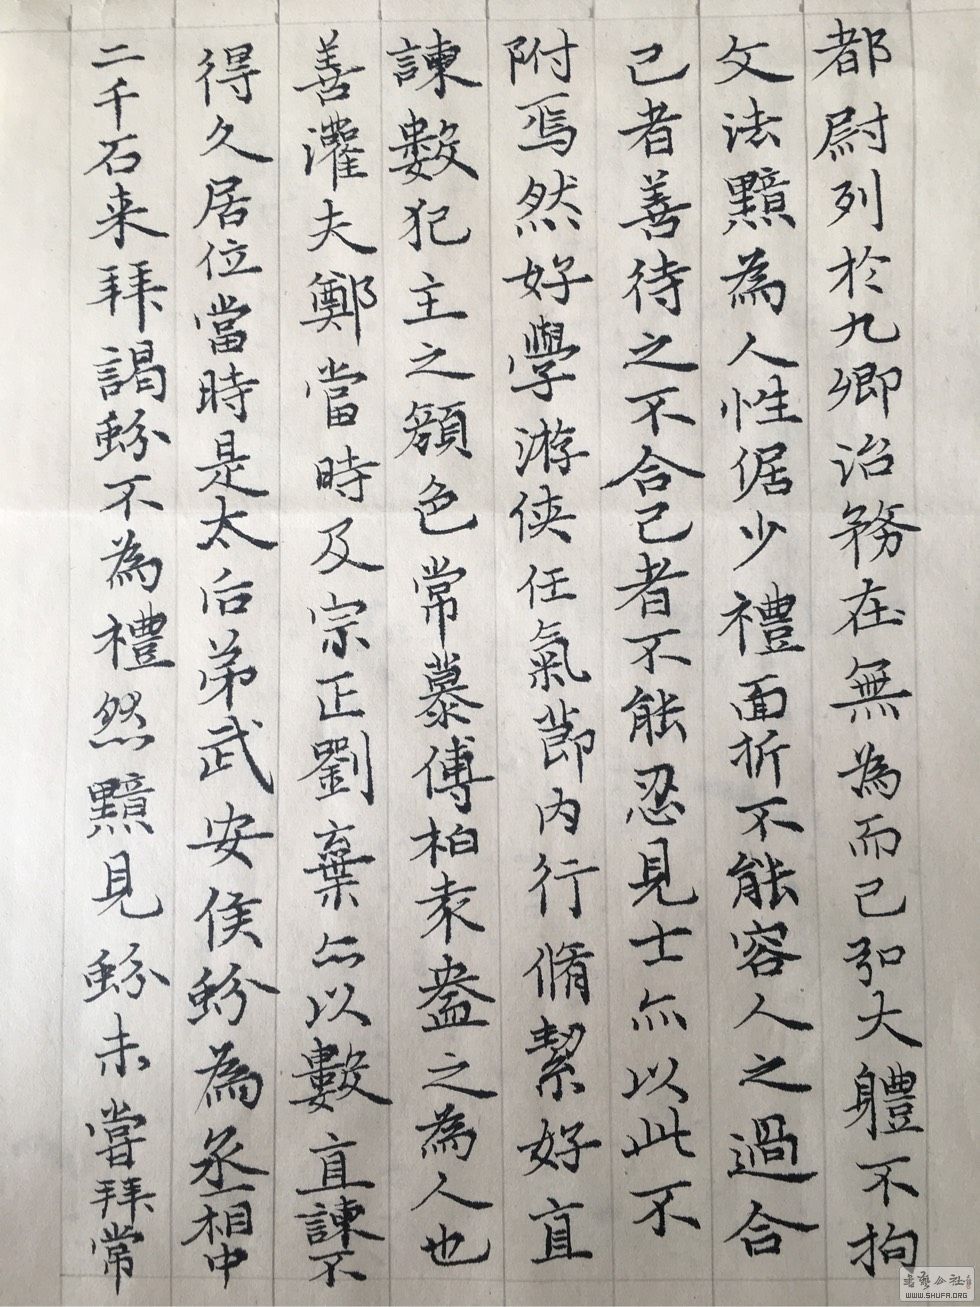 都尉列於九卿治務在無為而已弘大體不拘
文法黯為人性倨少禮面折不能容人之過合
己者善待之不合己者不能忍見士亦以此不
附焉然好學游俠任氣節內行脩絜好直
諫數犯主之顏色常慕傅柏袁盎之為人也
善灌夫鄭當時及宗正劉棄亦以數直諫不
得久居位當時是太后弟武安侯蚡為丞相中
二千石来拜謁蚡不為禮然黯見蚡未嘗拜常
書藝公社
WWW.SHUFA.ORG